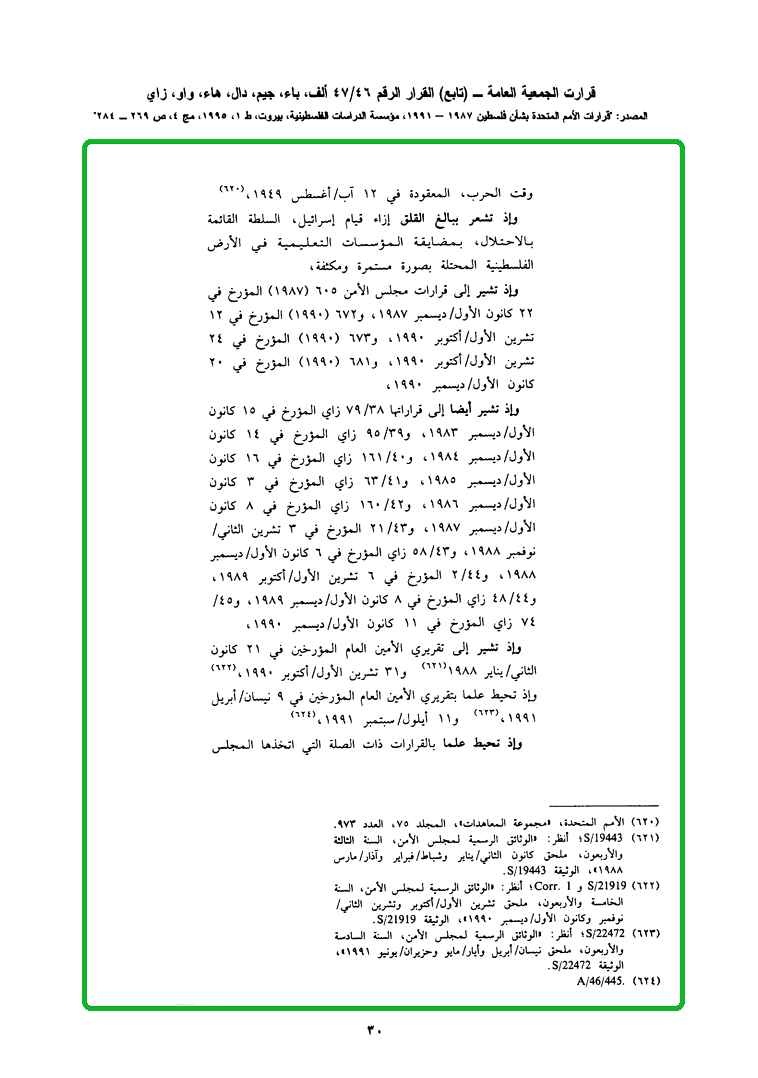 قرارت الجمعية العامة ــ (تابع) القرار الرقم ٤٧/٤٦ ألف، باء، جيم، دال، هاء، واو، زاي
المصدر: "قرارات الأمم المتحدة بشأن فلسطين ١٩٨٧ – ١٩٩١، مؤسسة الدراسات الفلسطينية، بيروت، ط ١، ١٩٩٥، مج ٤، ص ٢٦٩ ــ ٢٨٤"
وقت الحرب، المعقودة في ١٢ آب/أغسطس ١٩٤٩،(٦٢٠)
وإذ تشعر ببالغ القلق إزاء قيام إسرائيل، السلطة القائمة
بالاحتلال، بمضايقة المؤسسات التعليمية في الأرض
الفلسطينية المحتلة بصورة مستمرة ومكثفة،
وإذ تشير إلى قرارات مجلس الأمن ٦٠٥ (١٩٨٧) المؤرخ في
٢٢ كانون الأول/ديسمبر ١٩٨٧، و٦٧٢ (١٩٩٠) المؤرخ في ١٢
تشرين الأول/أكتوبر ١٩٩٠، و٦٧٣ (١٩٩٠) المؤرخ في ٢٤
تشرين الأول/أكتوبر ١٩٩٠، و٦٨١ (١٩٩٠) المؤرخ في ٢٠
كانون الأول/ديسمبر ١٩٩٠،
وإذ تشير أيضا إلى قراراتها ٧٩/٣٨ زاي المؤرخ في ١٥ كانون
الأول/ديسمبر ١٩٨٣، و٩٥/٣٩ زاي المؤرخ في ١٤ كانون
الأول/ديسمبر ١٩٨٤، و١٦١/٤٠ زاي المؤرخ في ١٦ كانون
الأول/ديسمبر ١٩٨٥، و٦٣/٤١ زاي المؤرخ في ٣ كانون
الأول/ديسمبر ١٩٨٦، و١٦٠/٤٢ زاي المؤرخ في ٨ كانون
الأول/ديسمبر ١٩٨٧، و٢١/٤٣ المؤرخ في ٣ تشرين الثاني/
نوفمبر ١٩٨٨، و٥٨/٤٣ زاي المؤرخ في ٦ كانون الأول/ديسمبر
١٩٨٨، و٢/٤٤ المؤرخ في ٦ تشرين الأول/أكتوبر ١٩٨٩،
و٤٨/٤٤ زاي المؤرخ في ٨ كانون الأول/ديسمبر ١٩٨٩، و٤٥/
٧٤ زاي المؤرخ في ١١ كانون الأول/ديسمبر ١٩٩٠،
وإذ تشير إلى تقريري الأمين العام المؤرخين في ٢١ كانون
الثاني/يناير ١٩٨٨(٦٢١) و٣١ تشرين الأول/أكتوبر ١٩٩٠،(٦٢٢)
وإذ تحيط علما بتقريري الأمين العام المؤرخين في ٩ نيسان/أبريل
١٩٩١،(٦٢٣) و١١ أيلول/سبتمبر ١٩٩١،(٦٢٤)
وإذ تحيط علما بالقرارات ذات الصلة التي اتخذها المجلس
(٦٢٠) الأمم المتحدة، «مجموعة المعاهدات»، المجلد ٧٥، العدد ٩٧٣.
(٦٢١) S/19443؛ أنظر: «الوثائق الرسمية لمجلس الأمن، السنة الثالثة
والأربعون، ملحق كانون الثاني/يناير وشباط/فبراير وآذار/مارس
١٩٨٨»، الوثيقة S/19443.
(٦٢٢) S/21919 و Corr. 1؛ أنظر: «الوثائق الرسمية لمجلس الأمن، السنة
الخامسة والأربعون، ملحق تشرين الأول/أكتوبر وتشرين الثاني/
نوفمبر وكانون الأول/ديسمبر ١٩٩٠»، الوثيقة S/21919.
(٦٢٣) S/22472؛ أنظر: «الوثائق الرسمية لمجلس الأمن، السنة السادسة
والأربعون، ملحق نيسان/أبريل وأيار/مايو وحزيران/يونيو ١٩٩١»،
الوثيقة S/22472.
(٦٢٤) A/46/445.
٣٠